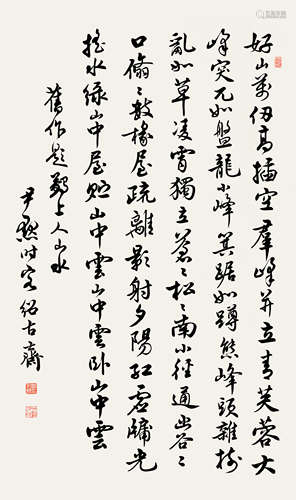 好山萬仞高插空群峰並立青芙蓉大
峰突兀如盤龍小峰箕踞如蹲熊峰頭雜樹
亂如草凌霄獨立蒼〻松〻南小徑通幽谷〻
口翛〻數椽屋疏離影射夕陽紅虛牖光
搖水綠山中屋貯山中雲山中雲臥山中雲
舊作題鄭上人山水
尹默時客紹古齋